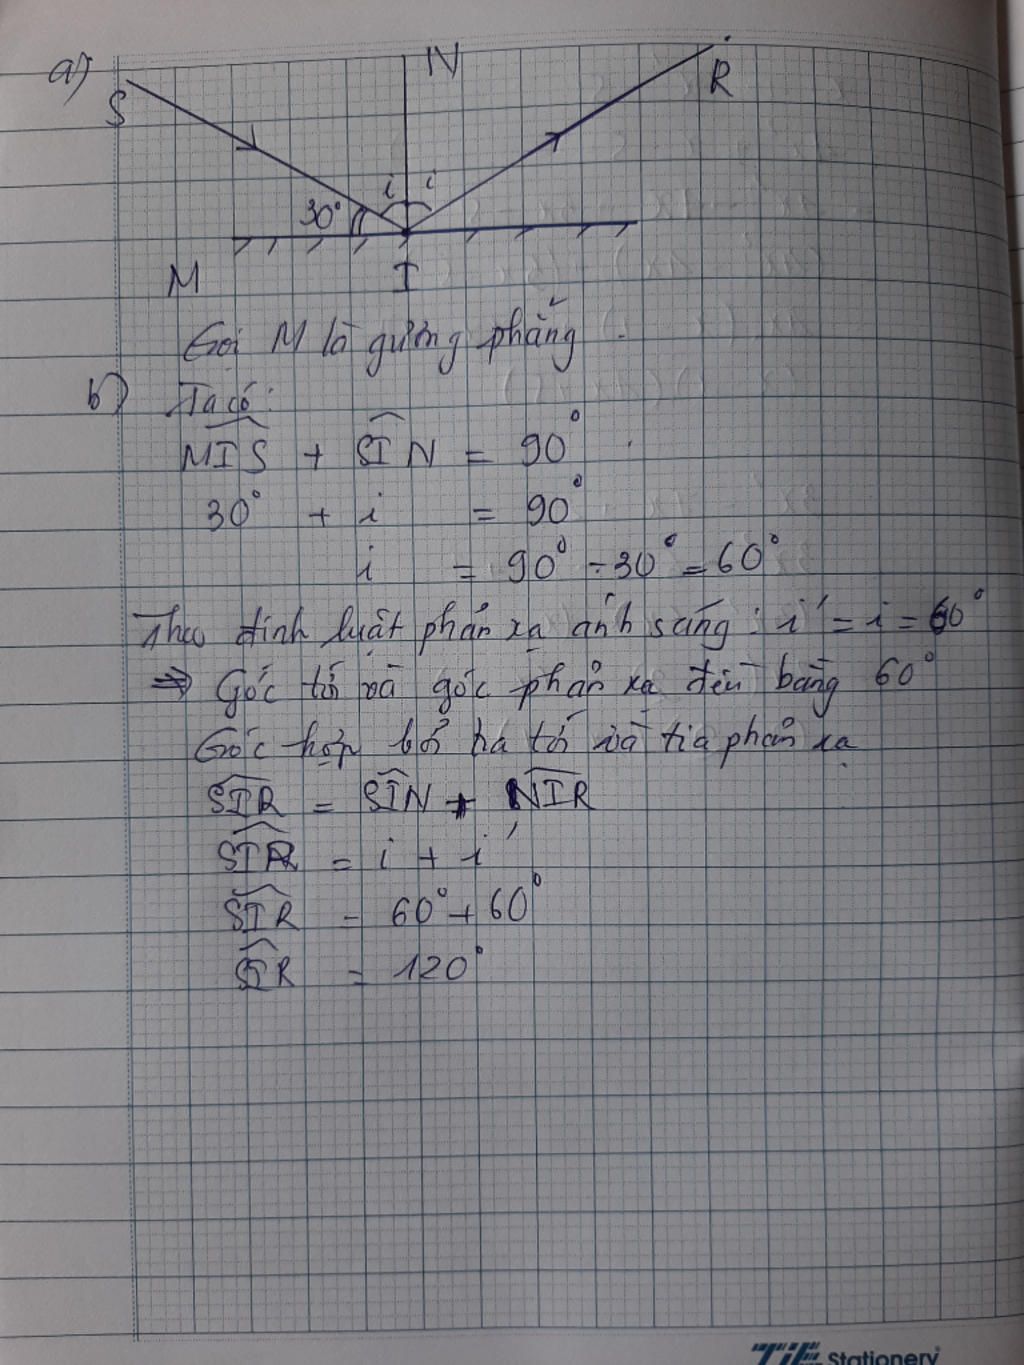 a)
S
N
R
i
i
30°
M
I
Gọi M là gương phẳng.
b)
Ta có:
MIS + SIN = 90°
30° + i = 90°
i = 90° - 30° = 60°
Theo định luật phản xạ ánh sáng: i' = i = 60°
=> Góc tới và góc phản xạ đều bằng 60°
Góc hợp bởi tia tới và tia phản xạ
SIR = SIN + NIR
SIR = i + i'
SIR = 60° + 60°
SIR = 120°
TiE Stationery